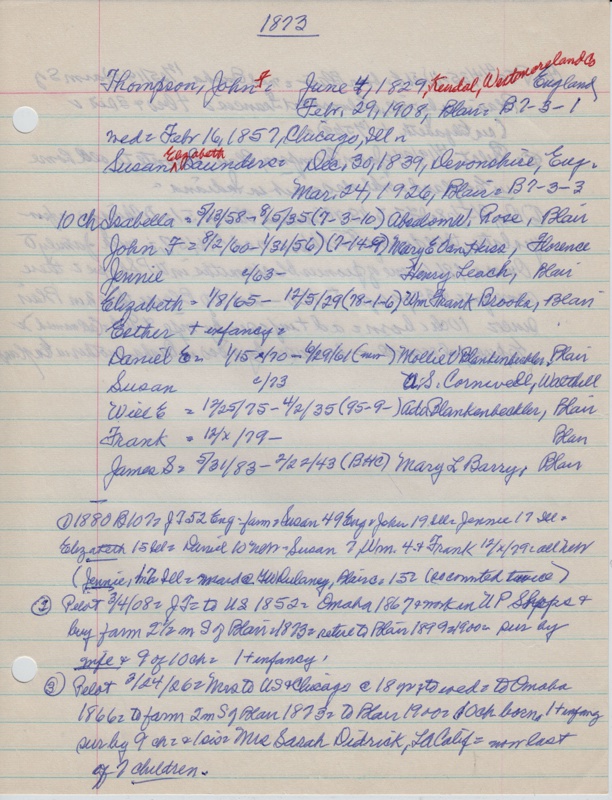 1873
Thompson, John F = June 4, 1829, Kendal, Westmoreland Co England
Febr. 29, 1908, Blair = B7-3-1
wed = Febr 16, 1857, Chicago, Ill
Susan Elizabeth Saunders = Dec, 30, 1839, Devonshire, Eng.
Mar. 24, 1926, Blair = B7-3-3
10 ch Isabella = 5/13/58 - 8/5/35 (7-3-10) W. Rose, Blair
John F = 8/2/60 - 1/31/56) (7-14-9) Mary E Van Huse, Florence
Jennie c/63 - Henry Leach, Blair
Elizabeth = 1/8/65 - 12/5/29 (78-1-6) Wm Frank Brooks, Blair
Esther + infancy =
Daniel E = 1/15 - 6/29/61 Mollie V Blankenbeckler, Blair
Susan c/73 A.S. Cornwell, Walthill
Will E = 12/25/75 - 4/2/35 (95-9-) Ada Blankenbeckler, Blair
Frank = 12/x/79 - Blair
James S = 5/31/83 - 2/22/43 (BHC) Mary L Barry, Blair
1) 1880 B107 = J F 52 Eng - farm = Susan 49 Eng = John 19 Ill = Jennie 17 Ill =
Elizabeth 15 Ill = Daniel 10 New = Susan 7, Wm 4 + Frank 12/x/79 = all New
(Jennie, Ill = Dulaney, Blair = 15 = (so counted twice)
2 Pilot 3/4/08 = J F = to US 1852 = Omaha 1867 = work in UP Shops +
buy farm 2 1/2 m S of Blair = 1873 = retire to Blair 1899 = 1900 = sur by
wife + 9 of 10 ch = 1 + infancy.
3 Pilot 3/24/26 = Mrs to US + Chicago @ 18 yr = to wed = to Omaha
1866 = to farm 2 m S of Blair 1873 = to Blair 1900 = 10 ch born, 1 + infancy
sur by 9 ch = + 1 sis = Mrs Sarah Didrick, LA Calif = now last
of 7 children.